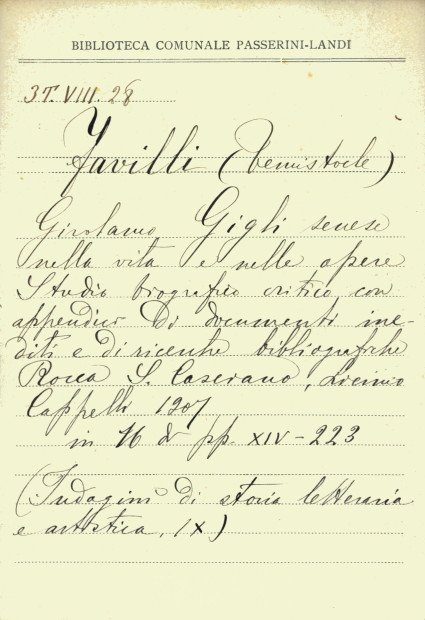 BIBLIOTECA COMUNALE PASSERINI-LANDI
3T. VIII. 28
Favilli (Temistocle)
Girolamo Gigli senese
nella vita e nelle opere
Studio biografico critico con
appendici di documenti ine-
diti e di ricerche bibliografiche
Rocca S. Casciano, Licinio
Cappelli 1907
in 16 di pp. XIV-223
(Indagini di storia letteraria
e artistica, IX)